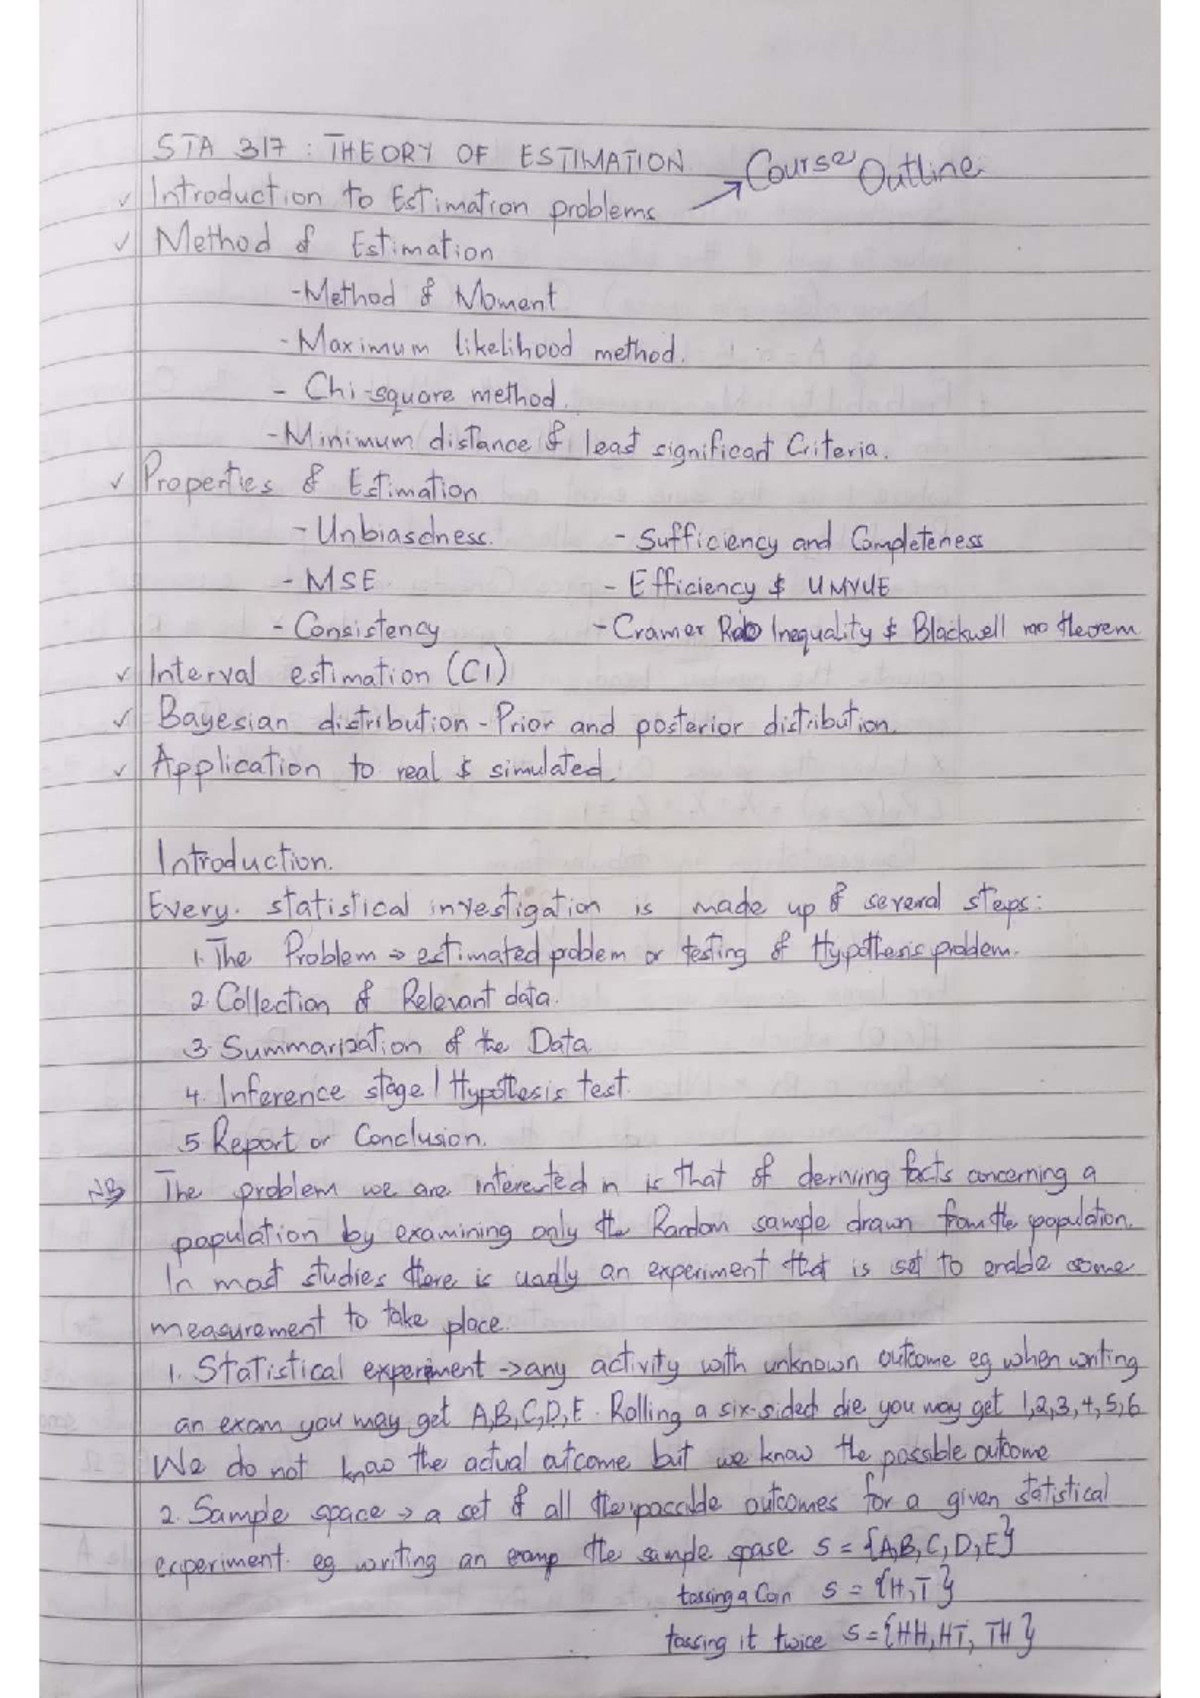 STA 317 : THEORY OF ESTIMATION
→ Course Outline
✓ Introduction to Estimation problems
✓ Method of Estimation
- Method of Moment
- Maximum likelihood method.
- Chi-square method.
- Minimum distance & least significant Criteria.
✓ Properties of Estimation
- Unbiasdness. - Sufficiency and Completeness
- MSE. - Efficiency & UMVUE
- Consistency - Cramer Rao Inequality & Blackwell rao theorem
✓ Interval estimation (CI)
✓ Bayesian distribution - Prior and posterior distribution.
✓ Application to real & simulated.
Introduction.
Every statistical investigation is made up of several steps:
1. The Problem → estimated problem or testing of Hypothesis problem.
2. Collection of Relevant data.
3. Summarization of the Data.
4. Inference stage / Hypothesis test.
5. Report or Conclusion.
NB The problem we are interested in is that of deriving facts concerning a
population by examining only the Random sample drawn from the population.
In most studies there is an experiment that is set to enable some
measurement to take place.
1. Statistical experiment → any activity with unknown outcome eg when writing
an exam you may get A,B,C,D,E. Rolling a six-sided die you may get 1,2,3,4,5,6
We do not know the actual outcome but we know the possible outcome
2. Sample space → a set of all the possible outcomes for a given statistical
experiment. eg writing an the sample spase S = {A,B,C,D,E}
tossing a Coin S = {H,T}
tossing it twice S = {HH, HT, TH}